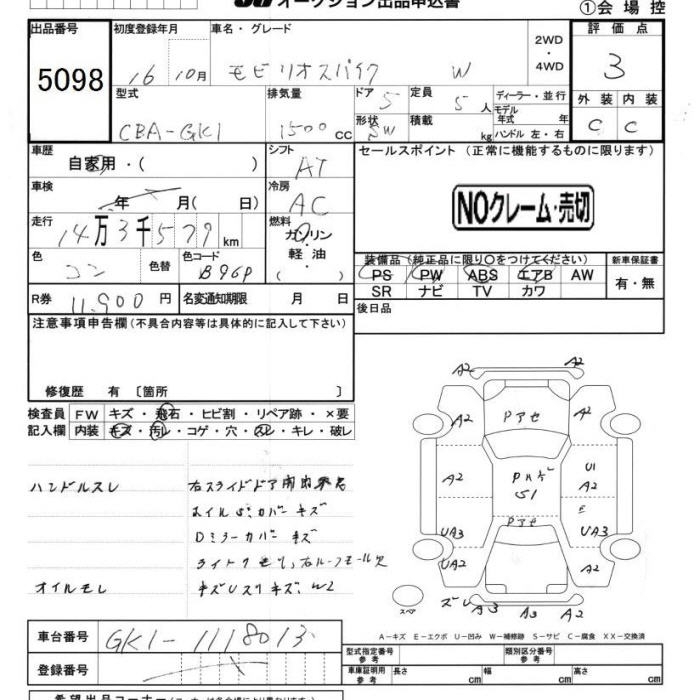 オークション出品申込書
①会場控
出品番号 初度登録年月 車名・グレード 評価点
5098 16 10月 モビリオスパイク W 2WD・4WD 3
型式 排気量 ドア 5 定員 5人 ディーラー・並行 外装 内装
CBA-GK1 1500cc 形状 SW 積載 kg モデル年式 年 C C
ハンドル 左・右
車歴 シフト セールスポイント (正常に機能するものに限ります)
自家用・( ) AT
車検 年 月( 日) 冷房 AC
NOクレーム・売切
走行 14万3千579km 燃料 ガソリン
軽油
・( )
色 コン 色替 色コード B96P
装備品 (純正品に限り○をつけてください) 新車保証書
PS PW ABS エアB AW 有・無
SR ナビ TV カワ
R券 11,900円 名変通知期限 月 日
後日品
注意事項申告欄(不具合内容等は具体的に記入して下さい)
修復歴 有〔箇所 〕
検査員 FW キズ・飛石・ヒビ割・リペア跡・×要
記入欄 内装 キズ・汚レ・コゲ・穴・スレ・キレ・破レ
ハンドルスレ 右スライドドア
ホイル カバー キズ
Dミラーカバー キズ
ライトクモリ, 右ルーフモール欠
オイルモレ
A2 A2
A2 Pアセ A2
A2 U1
A2
S1 E
Pアセ
UA3 UA3
UA2 A2
スペア
A3 A3 A2
A-キズ E-エクボ U-凹み W-補修跡 S-サビ C-腐食 XX-交換済
車台番号 GK1-1118013
登録番号
型式指定番号 参考 類別区分番号 参考
車庫証明用 参考 長さ cm 幅 cm 高さ cm
希望出品コーナー